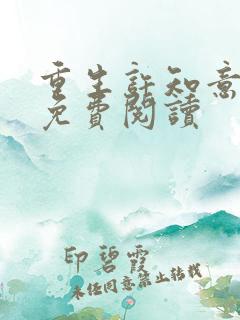 重生許知意
免費閱讀
印碧霞
未經同意禁止轉載